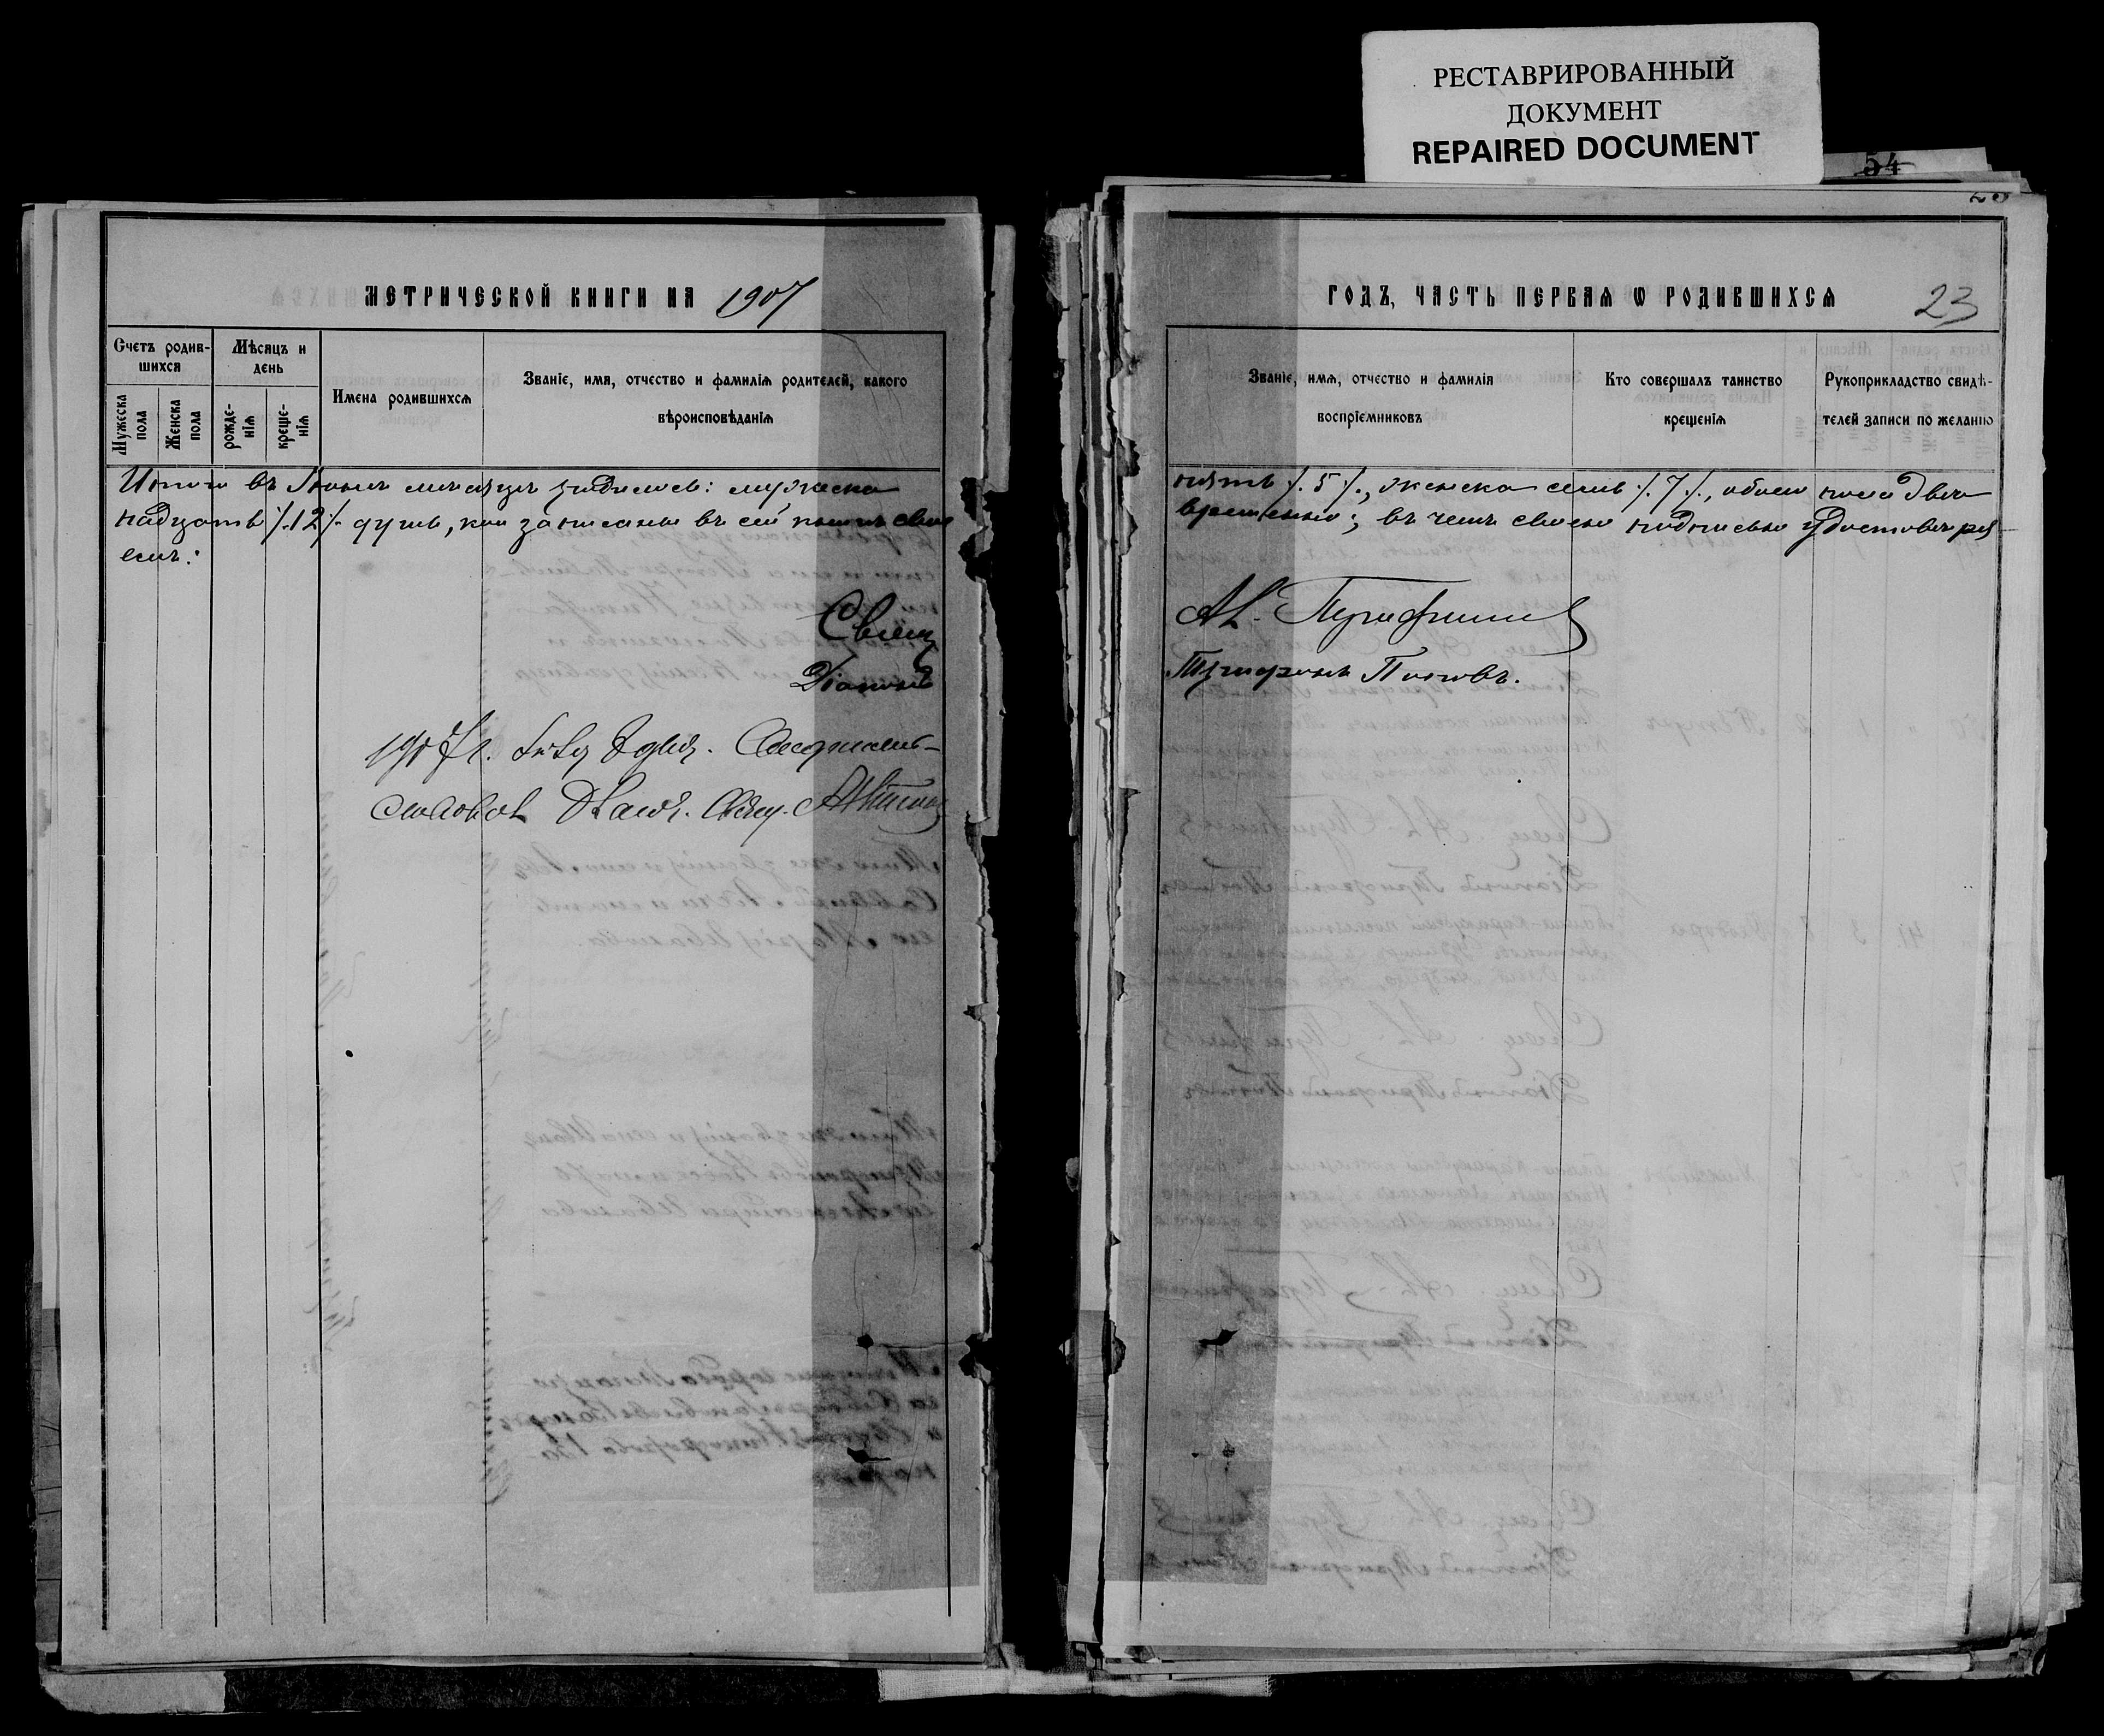 РЕСТАВРИРОВАННЫЙ
ДОКУМЕНТ
REPAIRED DOCUMENT
54
МЕТРИЧЕСКОЙ КНИГИ НА 1907
Счетъ родив-
шихся
Мѣсяцъ и
день
Мужеска
пола
Женска
пола
рожде-
нія
креще-
нія
Имена родившихся
Званіе, имя, отчество и фамилія родителей, какого
вѣроисповѣданія
Итого въ Іюнѣ мѣсяцѣ родилось: мужеска
надцать /.12/. душъ, кои записаны въ сей книгѣ свое
емъ:
Свящ
Діаконъ
1907 г.
ГОДЪ, ЧАСТЬ ПЕРВАЯ Ѡ РОДИВШИХСЯ 23
Званіе, имя, отчество и фамилія
воспріемниковъ
Кто совершалъ таинство
крещенія
Рукоприкладство свидѣ-
телей записи по желанію
пять /.5/., женска семь /.7/., обоего пола две
временно; въ чемъ своею подписью удостовѣря
Трифонъ Поповъ.